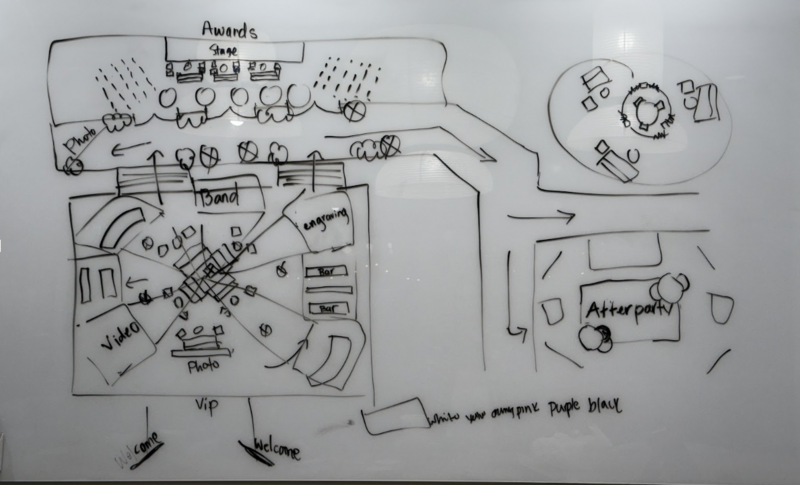 Awards
Stage
Photo
Band
engraving
Bar
Bar
Video
Photo
Afterparty
Vip
white pink purple black
Welcome
Welcome